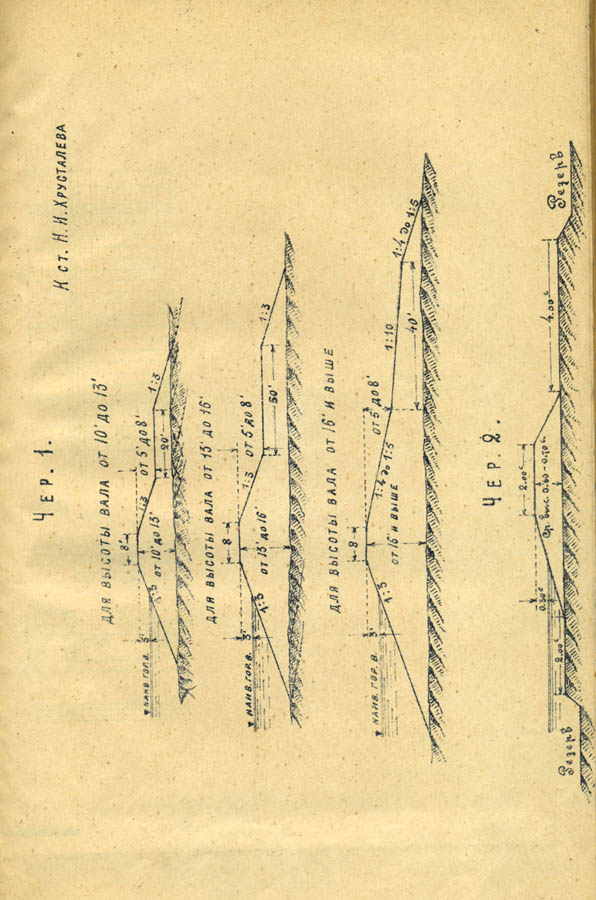 К СТ. Н. Н. ХРУСТАЛЕВА
ЧЕР. 1.
ДЛЯ ВЫСОТЫ ВАЛА ОТ 10' ДО 13'
НАИВ. ГОР. В.
3'
1:3
8'
ОТ 10' ДО 13'
1:3
ОТ 5' ДО 8'
20'
1:3
ДЛЯ ВЫСОТЫ ВАЛА ОТ 13' ДО 16'
НАИВ. ГОР. В.
3'
1:3
8
ОТ 13' ДО 16'
1:3
ОТ 5' ДО 8'
1:3
ДЛЯ ВЫСОТЫ ВАЛА ОТ 16' И ВЫШЕ
НАИВ. ГОР. В.
3'
1:3
8
ОТ 16' И ВЫШЕ
1:4 ДО 1:5
ОТ 5' ДО 8'
1:10
40'
1:4 ДО 1:5
ЧЕР. 2.
Резервъ
2.00с
0.30с
2.00с
Ср. выс 0.60-0.70с
4.00с
Резервъ